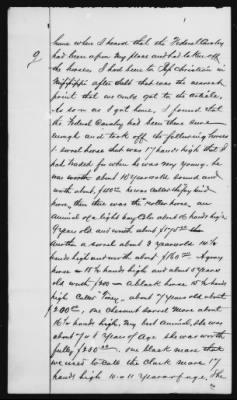 2
home when I heard that the Federal Cavalry
had been upon my place and had taken off
the horses. I had been to Pap Christian in
Mississippi after Salt that was the nearest
point that we could get to the article,
As soon as I got home, I found that
the Federal Cavalry had been there sure
enough and took off the following horses
1 sorrel horse that was 17 hands high that I
had traded for when he was very young. he
was about 10 years old sound and
worth about, he was
horse, then there was the roller horse, an
animal of a light bay Color about 16 hands high
9 years old and worth about $175.00
Another a sorrel about 8 years old 14 ½
hands high and worth about $150.00 A gray
horse 15 ½ hands high and about 5 years
old worth $200 - a black horse 15 ½ hands
high Called about 7 years old about
$200.00, one Chesnut Sorrel Mare about
16 ½ hands high, my best animal, she was
about 7 or 8 years of Age she was worth
fully $250.00. one black mare that
we used to call the Clark mare 17
hands high 10 or 11 years of age, She